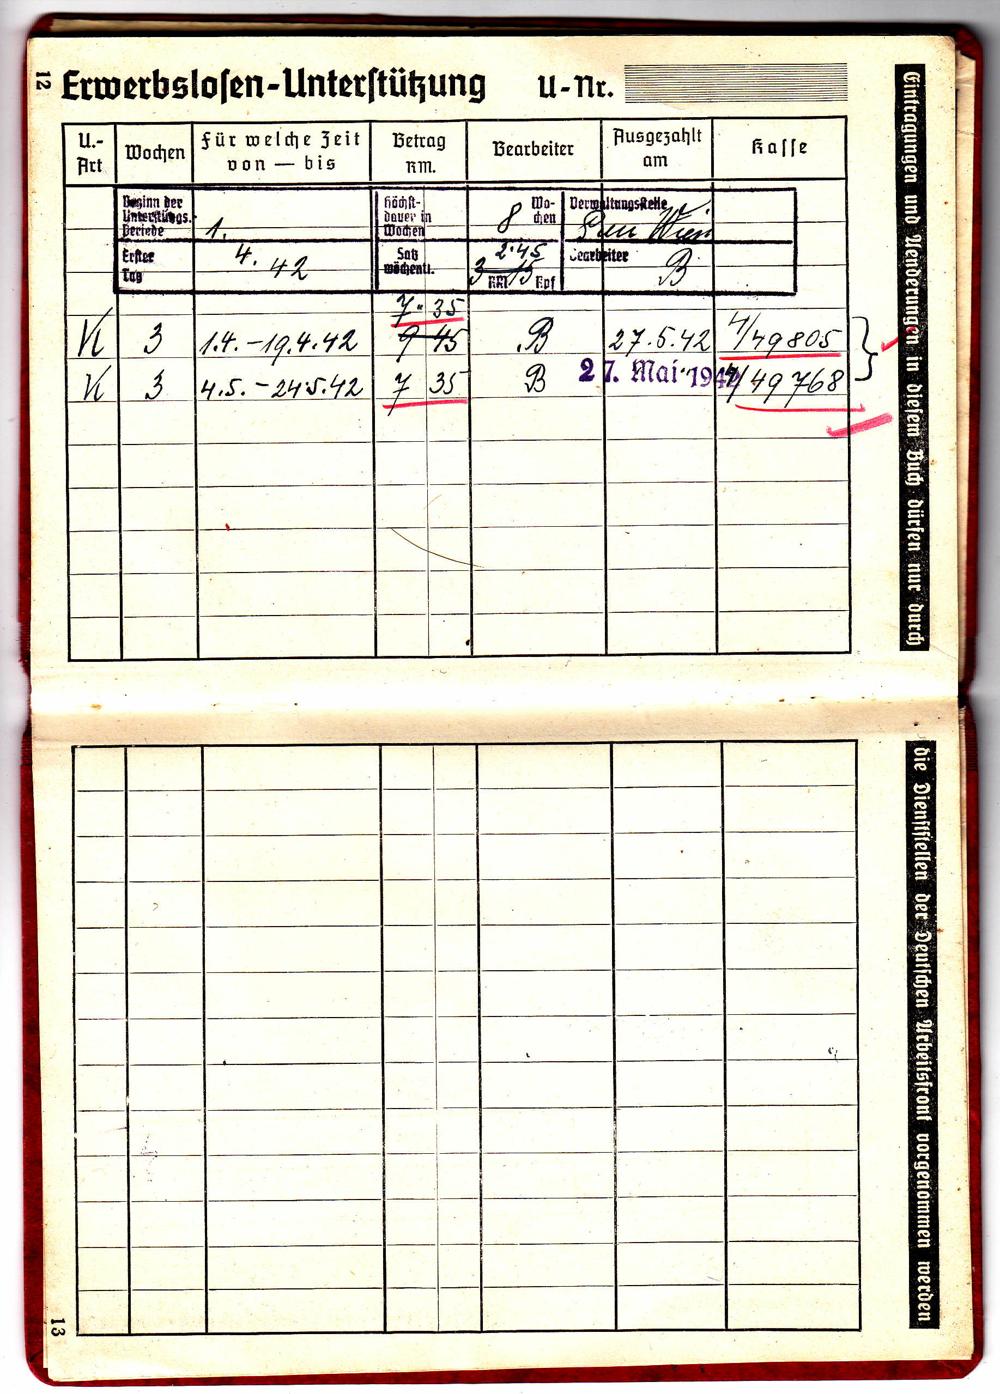 12
Erwerbslosen-Unterstützung U-Nr.
U.-Art Wochen Für welche Zeit von — bis Betrag RM. Bearbeiter Ausgezahlt am Kasse
Beginn der Unterstützgs.-Periode 1. Höchst-dauer in Wochen 8 Wo-chen Verwaltungsstelle Wien
Erster Tag 4. 42 Satz wöchentl. 2.45 3 15 RM Rpf Bearbeiter B
7 35
K 3 1.4.-19.4.42 9 45 B 27.5.42 4/49805
K 3 4.5.-24.5.42 7 35 B 27. Mai 1942 4/49768
Eintragungen und Aenderungen in diesem Buch dürfen nur durch
die Dienststellen der Deutschen Arbeitsfront vorgenommen werden
13